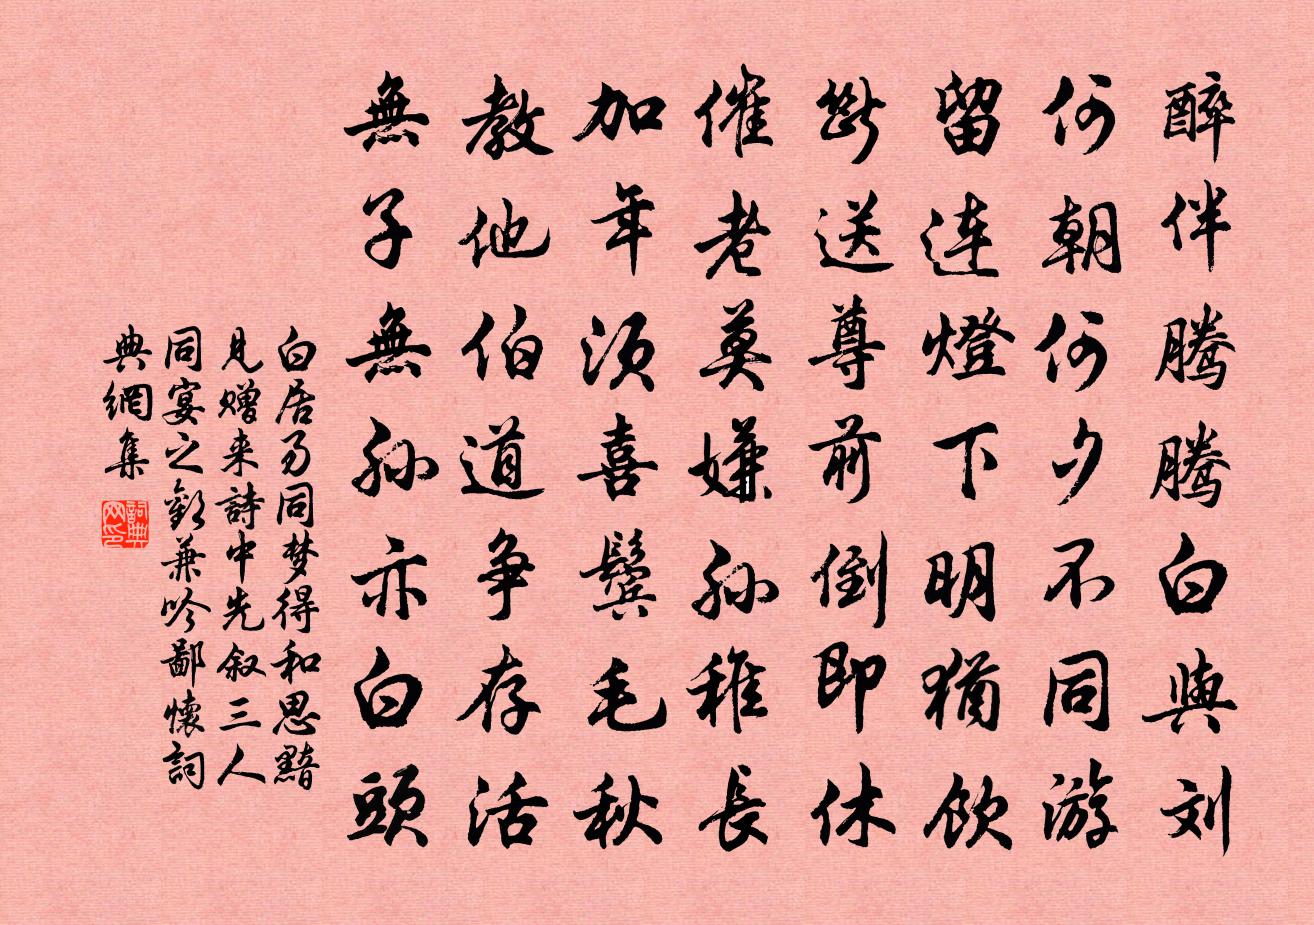 醉伴腾腾白與刘
何朝何夕不同游
留连燈下明猶飲
斷送尊前倒即休
催老莫嫌孫稚長
加年须喜鬓毛秋
教他伯道争存活
無子無孫亦白頭
白居易同梦得和思黯
見赠来詩中先叙三人
同宴之歡兼吟鄙懷詞
典網集
詞典网印